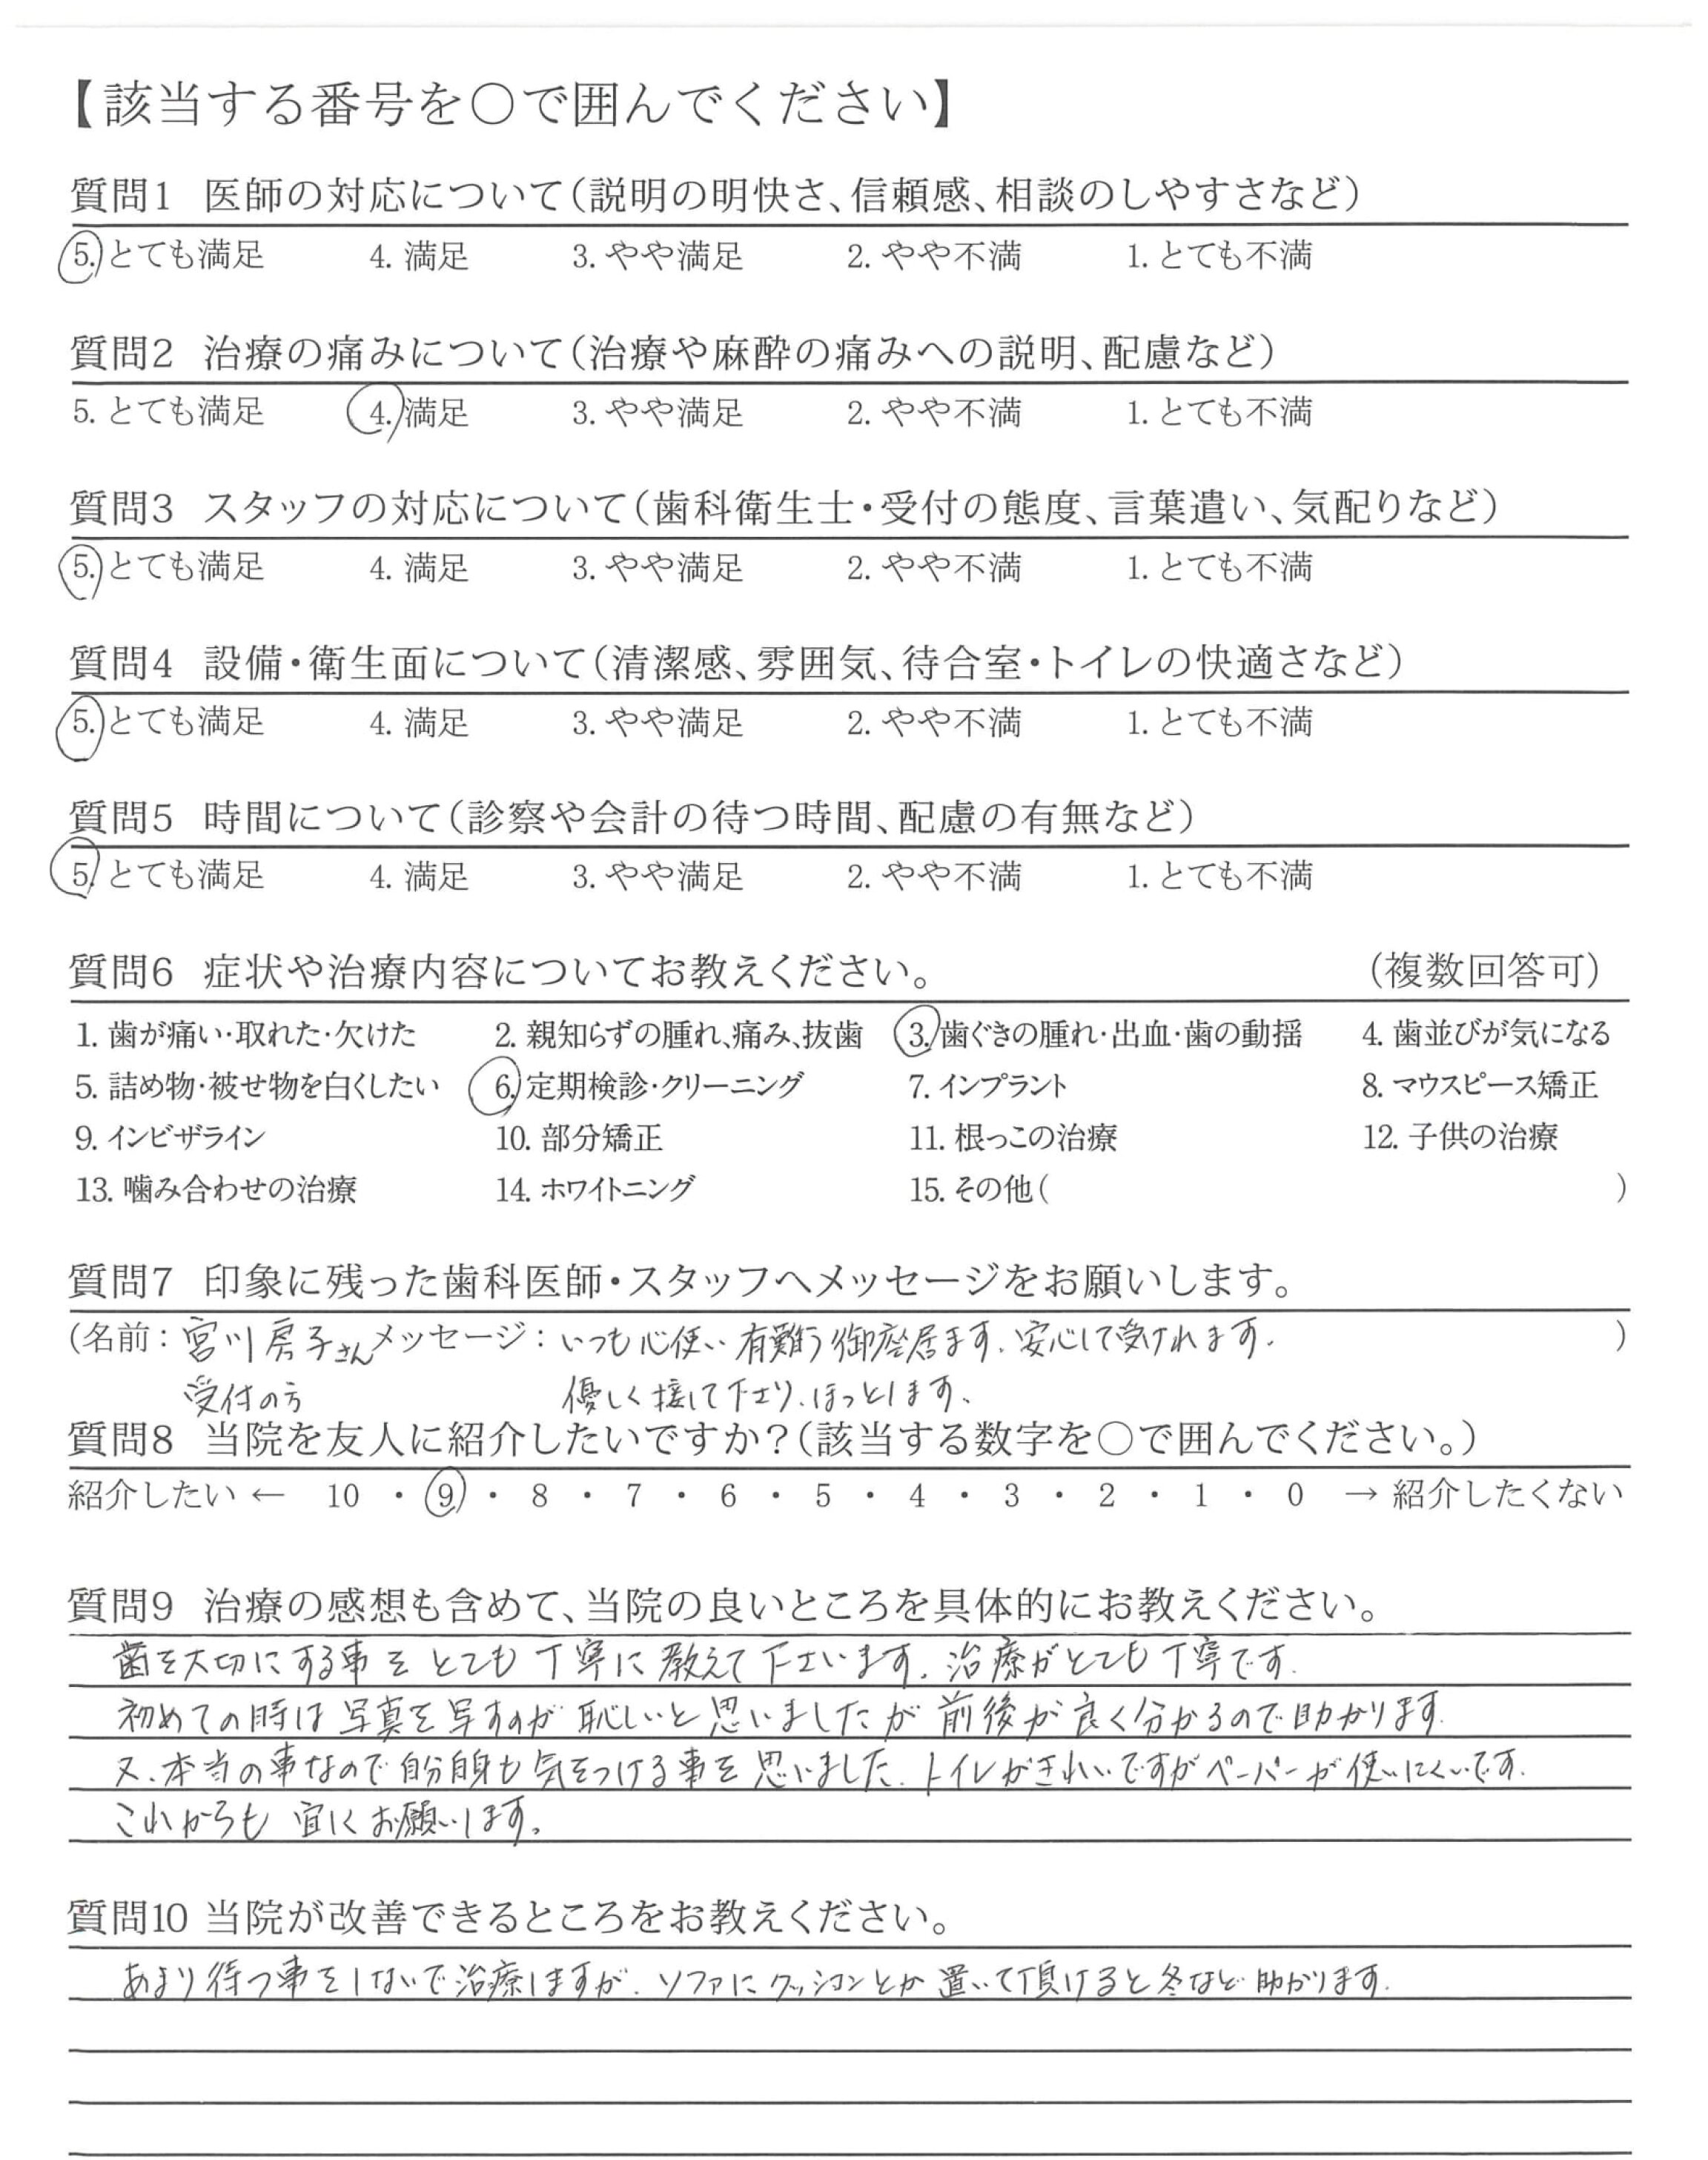 【該当する番号を〇で囲んでください】
質問1 医師の対応について(説明の明快さ、信頼感、相談のしやすさなど)
5. とても満足 4. 満足 3. やや満足 2. やや不満 1. とても不満
質問2 治療の痛みについて(治療や麻酔の痛みへの説明、配慮など)
5. とても満足 4. 満足 3. やや満足 2. やや不満 1. とても不満
質問3 スタッフの対応について(歯科衛生士・受付の態度、言葉遣い、気配りなど)
5. とても満足 4. 満足 3. やや満足 2. やや不満 1. とても不満
質問4 設備・衛生面について(清潔感、雰囲気、待合室・トイレの快適さなど)
5. とても満足 4. 満足 3. やや満足 2. やや不満 1. とても不満
質問5 時間について(診察や会計の待つ時間、配慮の有無など)
5. とても満足 4. 満足 3. やや満足 2. やや不満 1. とても不満
質問6 症状や治療内容についてお教えください。 (複数回答可)
1. 歯が痛い・取れた・欠けた 2. 親知らずの腫れ、痛み、抜歯 3. 歯ぐきの腫れ・出血・歯の動揺 4. 歯並びが気になる
5. 詰め物・被せ物を白くしたい 6. 定期検診・クリーニング 7. インプラント 8. マウスピース矯正
9. インビザライン 10. 部分矯正 11. 根っこの治療 12. 子供の治療
13. 噛み合わせの治療 14. ホワイトニング 15. その他( )
質問7 印象に残った歯科医師・スタッフへメッセージをお願いします。
(名前：宮川房子さん メッセージ：いつも心使い有難う御座居ます。安心して受けれます。 )
受付の方 優しく接して下さり、ほっとします、
質問8 当院を友人に紹介したいですか？(該当する数字を〇で囲んでください。)
紹介したい ← 10 ・ 9 ・ 8 ・ 7 ・ 6 ・ 5 ・ 4 ・ 3 ・ 2 ・ 1 ・ 0 → 紹介したくない
質問9 治療の感想も含めて、当院の良いところを具体的にお教えください。
歯を大切にする事をとても丁寧に教えて下さいます。治療がとても丁寧です.
初めての時は写真を写すのが恥しいと思いましたが前後が良く分かるので助かります.
又、本当の事なので自分自身も気をつける事を思いました. トイレがきれいですがペーパーが使いにくいです.
これからも宜しくお願いします。
質問10 当院が改善できるところをお教えください。
あまり待つ事をしないで治療しますが. ソファにクッションとか置いて頂けると冬など助かります.